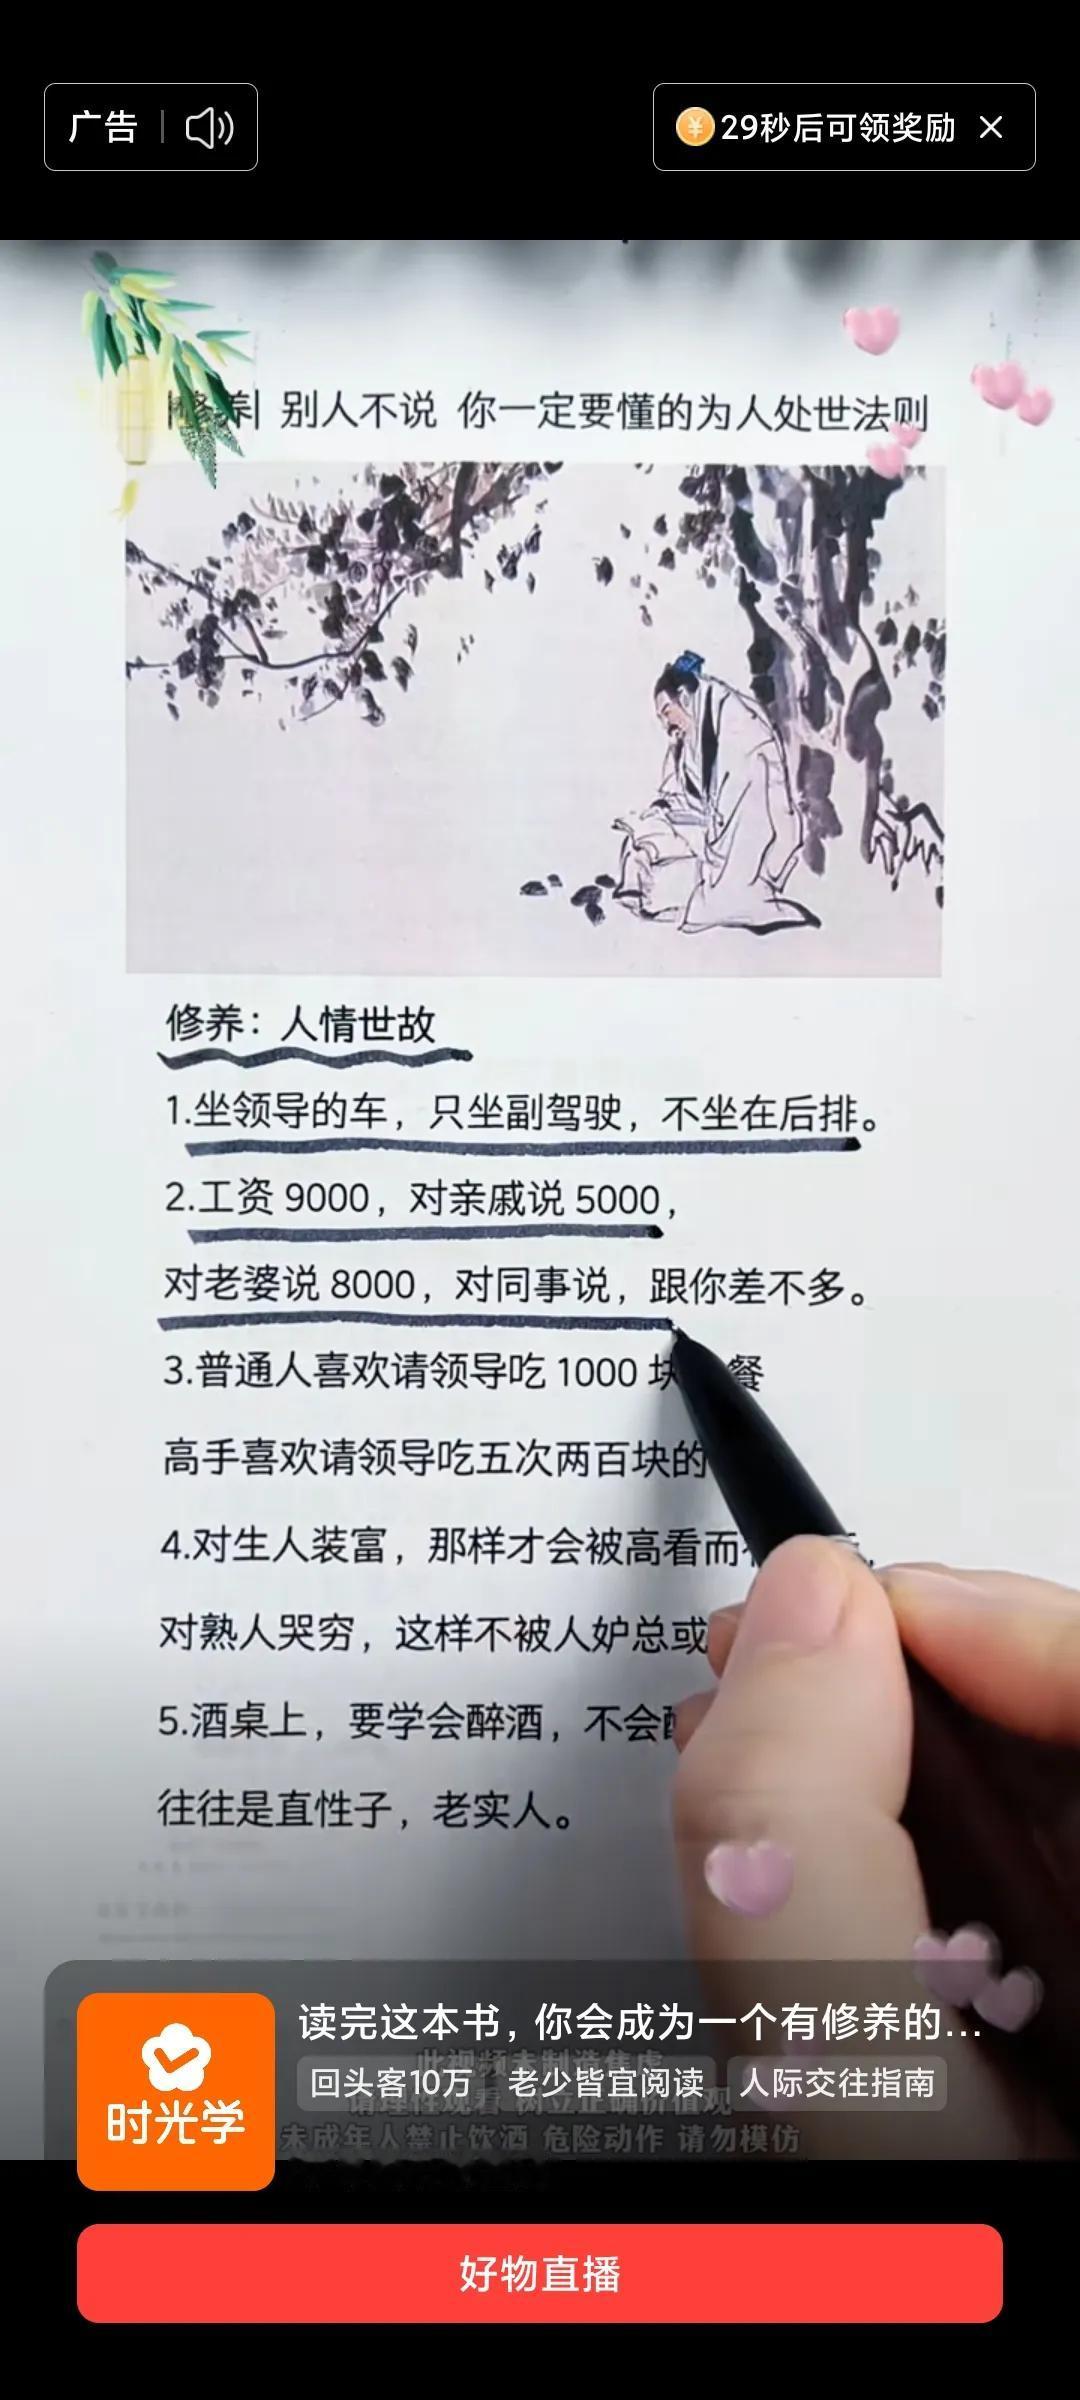 广告
29秒后可领奖励
|修养| 别人不说 你一定要懂的为人处世法则
修养：人情世故
1.坐领导的车，只坐副驾驶，不坐在后排。
2.工资 9000，对亲戚说 5000，
对老婆说 8000，对同事说，跟你差不多。
3.普通人喜欢请领导吃 1000 块 餐
高手喜欢请领导吃五次两百块的
4.对生人装富，那样才会被高看而
对熟人哭穷，这样不被人妒总或
5.酒桌上，要学会醉酒，不会
往往是直性子，老实人。
读完这本书，你会成为一个有修养的...
此视频未制造焦虑
回头客10万 老少皆宜阅读 人际交往指南
请理性观看 树立正确价值观
时光学
未成年人禁止饮酒 危险动作 请勿模仿
好物直播